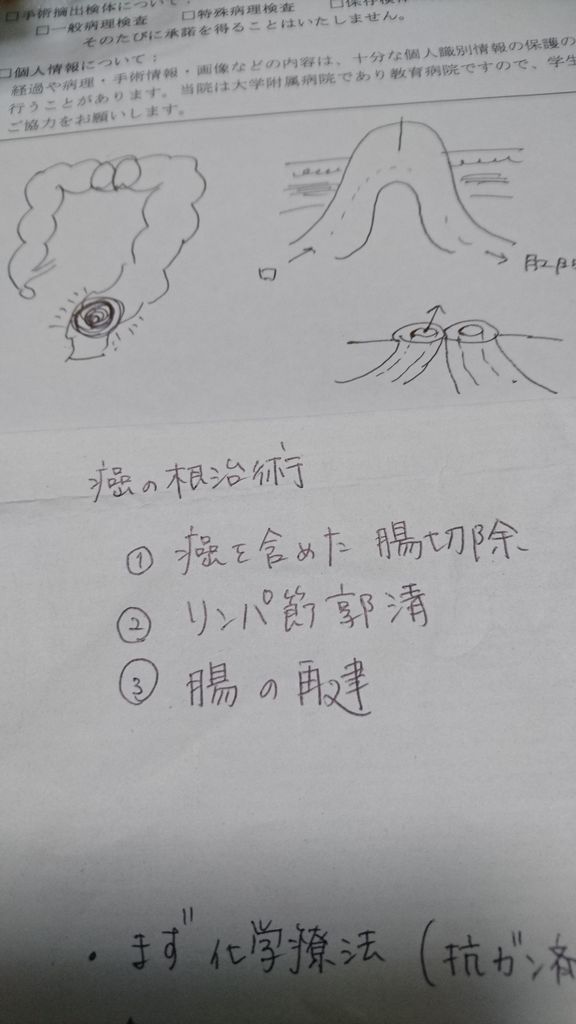 □手術摘出検体について:
□一般病理検査 □特殊病理検査 □保存検体
そのたびに承諾を得ることはいたしません。
□個人情報について:
経過や病理・手術情報・画像などの内容は、十分な個人識別情報の保護の
行うことがあります。当院は大学附属病院であり教育病院ですので、学生
ご協力をお願いします。
口
肛門
癌の根治術
① 癌を含めた 腸切除
② リンパ節郭清
③ 腸の再建
・まず 化学療法 (抗ガン剤